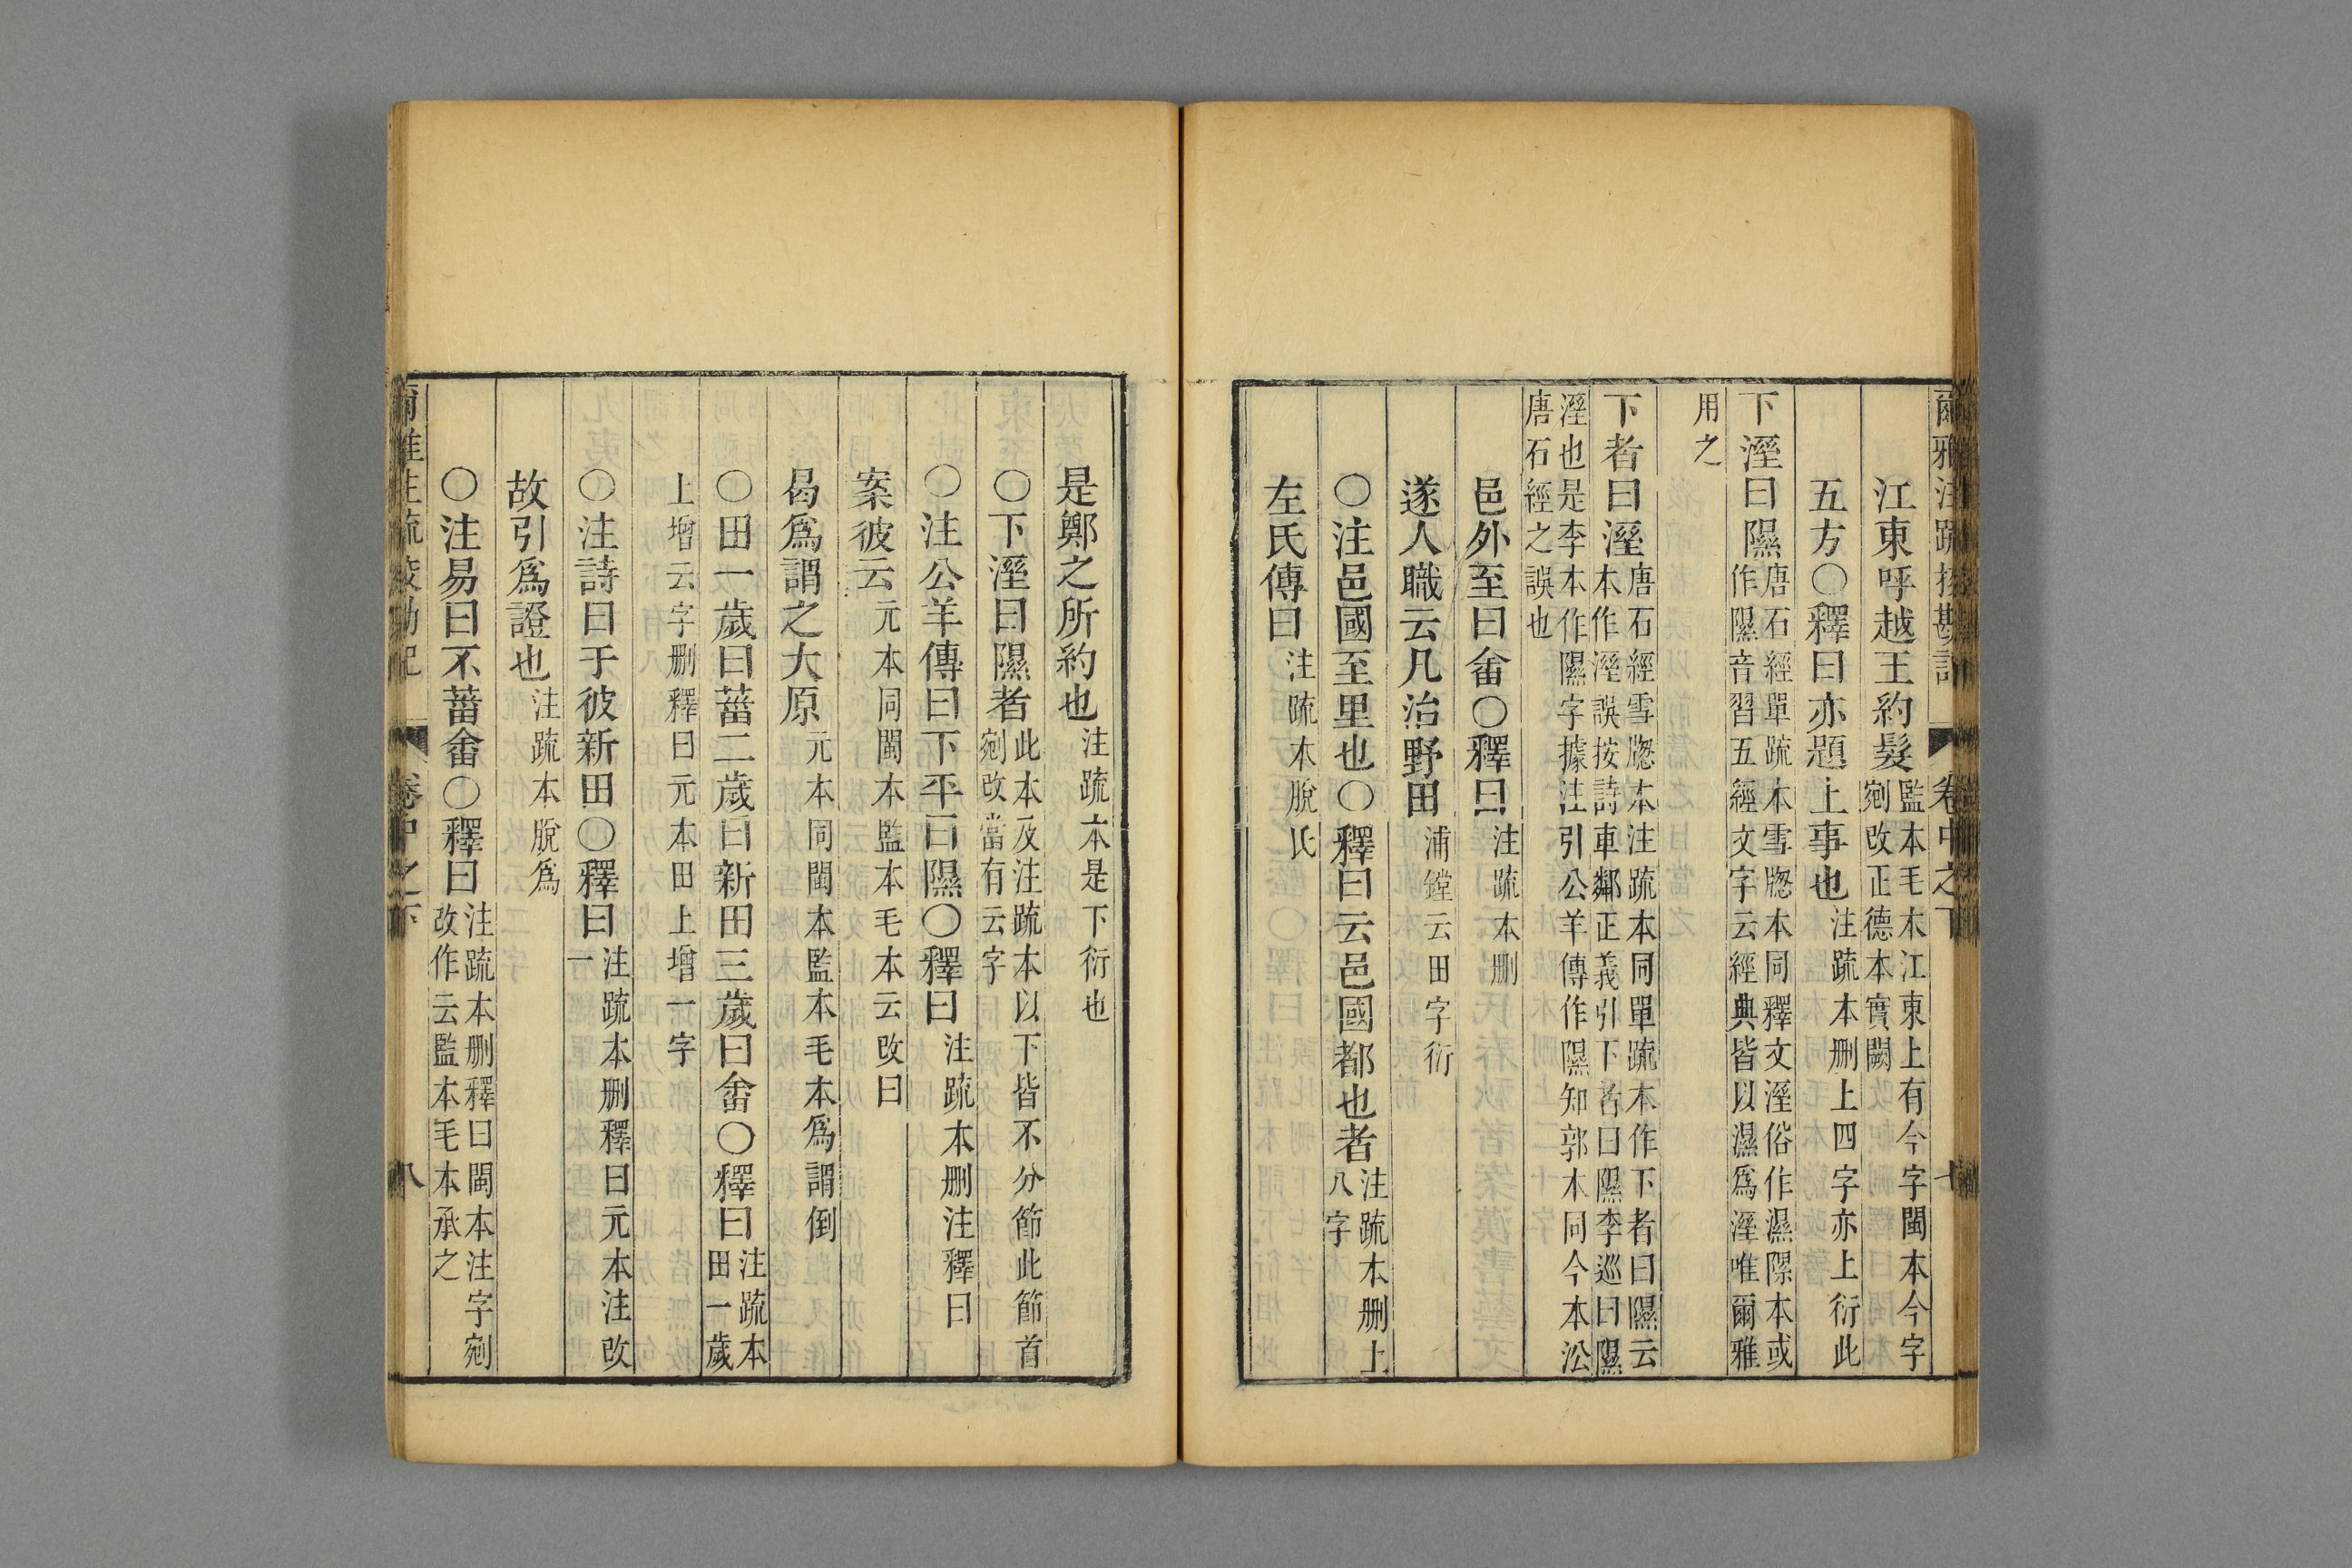 爾雅注疏挍勘記 卷中之下 七
江東呼越王約髮監本毛本江東上有今字閩本今字
剜改正德本實闕
五方〇釋曰亦題上事也注疏本刪上四字亦上衍此
下溼曰隰唐石經單疏本雪牕本同釋文溼俗作濕隰本或
作隰音習五經文字云經典皆以濕爲溼唯爾雅
用之
下者曰溼唐石經雪牕本注疏本同單疏本作下者曰隰云
本作溼誤按詩車鄰正義引下者曰隰李巡曰隰
溼也是李本作隰字據注引公羊傳作隰知郭本同今本㳂
唐石經之誤也
邑外至曰畬〇釋曰注疏本刪
遂人職云凡治野田浦鏜云田字衍
〇注邑國至里也〇釋曰云邑國都也者注疏本刪上
八字
左氏傳曰注疏本脫氏
是鄭之所約也注疏本是下衍也
〇下溼曰隰者此本及注疏本以下皆不分節此節首
剜改當有云字
〇注公羊傳曰下平曰隰〇釋曰注疏本刪注釋曰
案彼云元本同閩本監本毛本云改曰
曷爲謂之大原元本同閩本監本毛本爲謂倒
〇田一歲曰菑二歲曰新田三歲曰畬〇釋曰注疏本
田一歲
上增云字刪釋曰元本田上增一字
〇注詩曰于彼新田〇釋曰注疏本刪釋曰元本注改
一
故引爲證也注疏本脫爲
〇注易曰不菑畬〇釋曰注疏本刪釋曰閩本注字剜
改作云監本毛本承之
爾雅注疏挍勘記 卷中之下 八